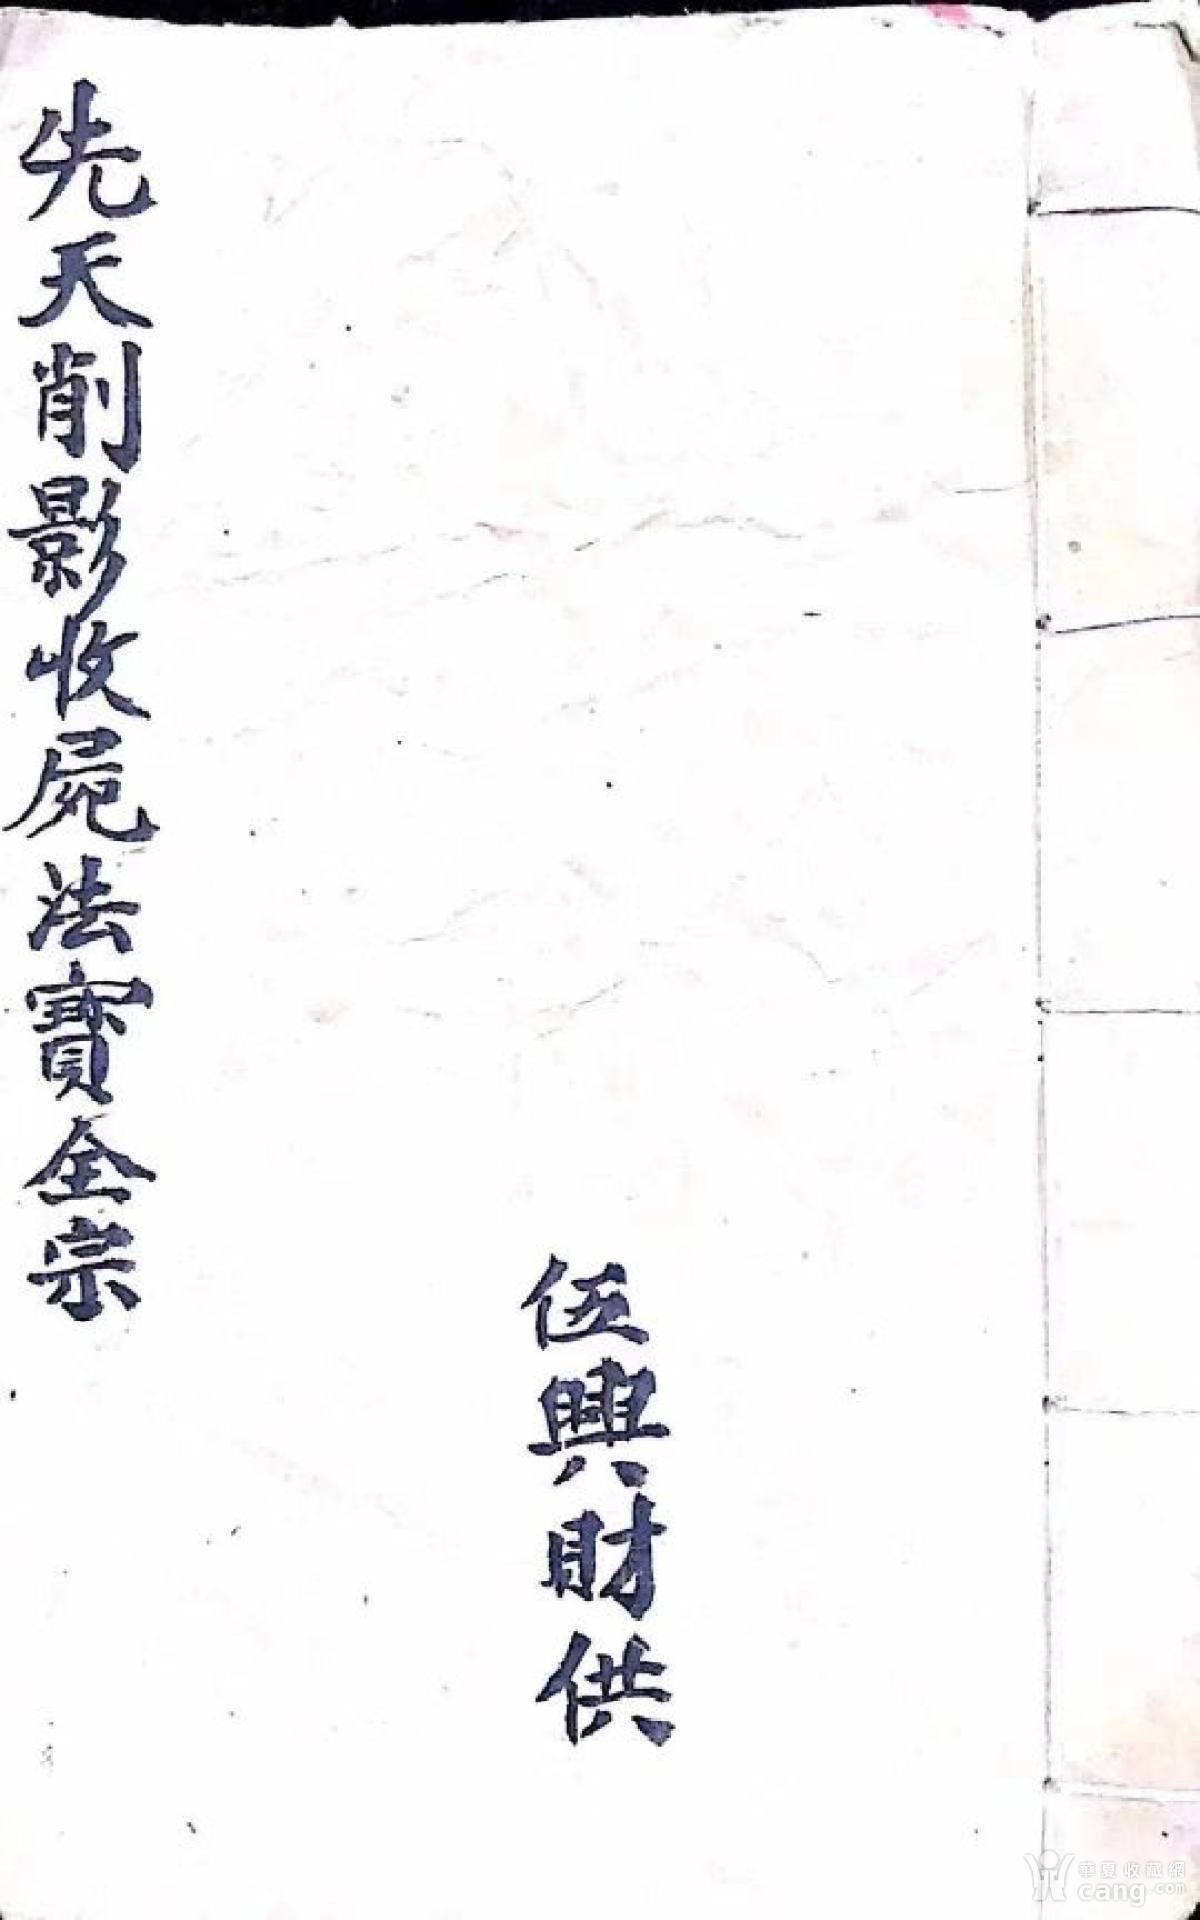 伍興財供
先天削影收屍法寶全宗
華夏收藏網
cang.com